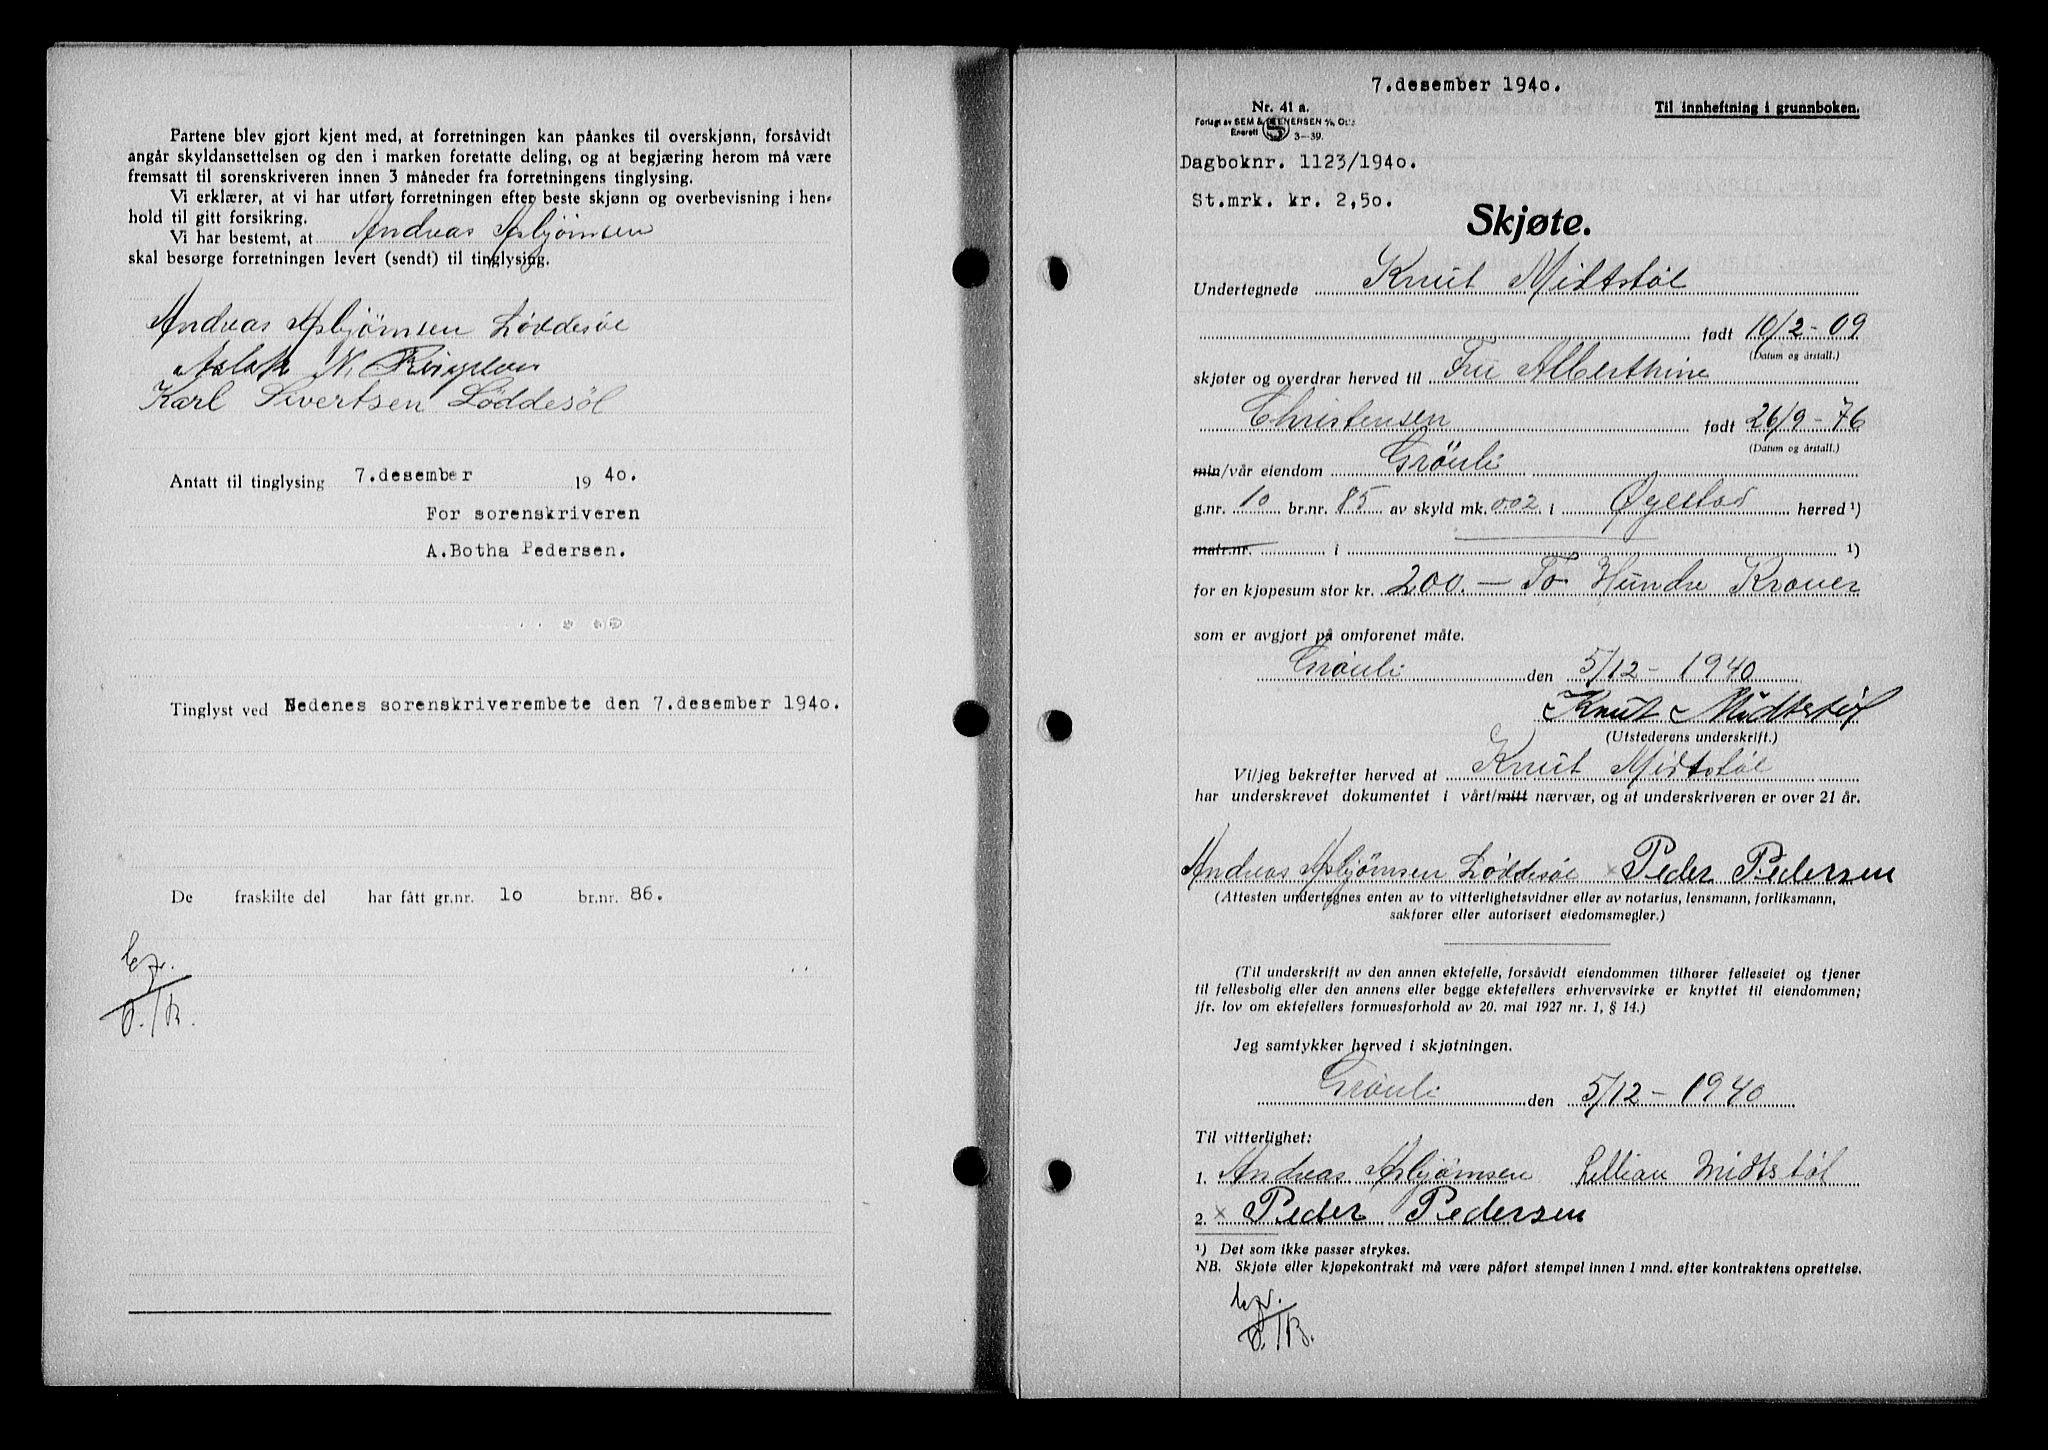 Partene blev gjort kjent med, at forretningen kan påankes til overskjønn, forsåvidt
angår skyldansettelsen og den i marken foretatte deling, og at begjæring herom må være
fremsatt til sorenskriveren innen 3 måneder fra forretningens tinglysing.
Vi erklærer, at vi har utført forretningen efter beste skjønn og overbevisning i hen-
hold til gitt forsikring.
Vi har bestemt, at Andreas Asbjørnsen
skal besørge forretningen levert (sendt) til tinglysing.
Andreas Asbjørnsen Løddesøl
Aslak N.
Karl Sivertsen Løddesöl
Antatt til tinglysing 7.desember 1940.
For sorenskriveren
A.Botha Pedersen.
Tinglyst ved Nedenes sorenskriverembete den 7.desember 1940.
De fraskilte del har fått gr.nr. 10 br.nr. 86.
7.desember 1940.
Nr. 41 a.
Til innheftning i grunnboken.
Forlagt av SEM & STENERSEN A/S, OSLO
Enerett S 3—39.
Dagboknr. 1123/1940.
St.mrk. kr. 2,50.
Skjøte.
Undertegnede Knut Midtstøl
født 10/2-09
(Datum og årstall.)
skjøter og overdrar herved til Fru Alberthine
Christensen født 26/9-76
(Datum og årstall.)
min/vår eiendom Gröuli
g.nr. 10 br.nr. 85 av skyld mk. 0.02 i Øyestad herred ¹)
matr.nr. i ¹)
for en kjøpesum stor kr. 200.— To Hundre Kroner
som er avgjort på omforenet måte.
Gröuli den 5/12-1940
Knut Midtstøl
(Utstederens underskrift.)
Vi/jeg bekrefter herved at Knut Midtstøl
har underskrevet dokumentet i vårt/mitt nærvær, og at underskriveren er over 21 år.
Andreas Asbjørnsen Løddesøl × Peder Pedersen
(Attesten undertegnes enten av to vitterlighetsvidner eller av notarius, lensmann, forliksmann,
sakfører eller autorisert eiedomsmegler.)
(Til underskrift av den annen ektefelle, forsåvidt eiendommen tilhører felleseiet og tjener
til fellesbolig eller den annens eller begge ektefellers erhvervsvirke er knyttet til eiendommen;
jfr. lov om ektefellers formuesforhold av 20. mai 1927 nr. 1, § 14.)
Jeg samtykker herved i skjøtningen.
Gröuli den 5/12-1940
Til vitterlighet:
1. Andreas Asbjørnsen Lillian Midtstøl
2. × Peder Pedersen
¹) Det som ikke passer strykes.
NB. Skjøte eller kjøpekontrakt må være påført stempel innen 1 mnd. efter kontraktens oprettelse.